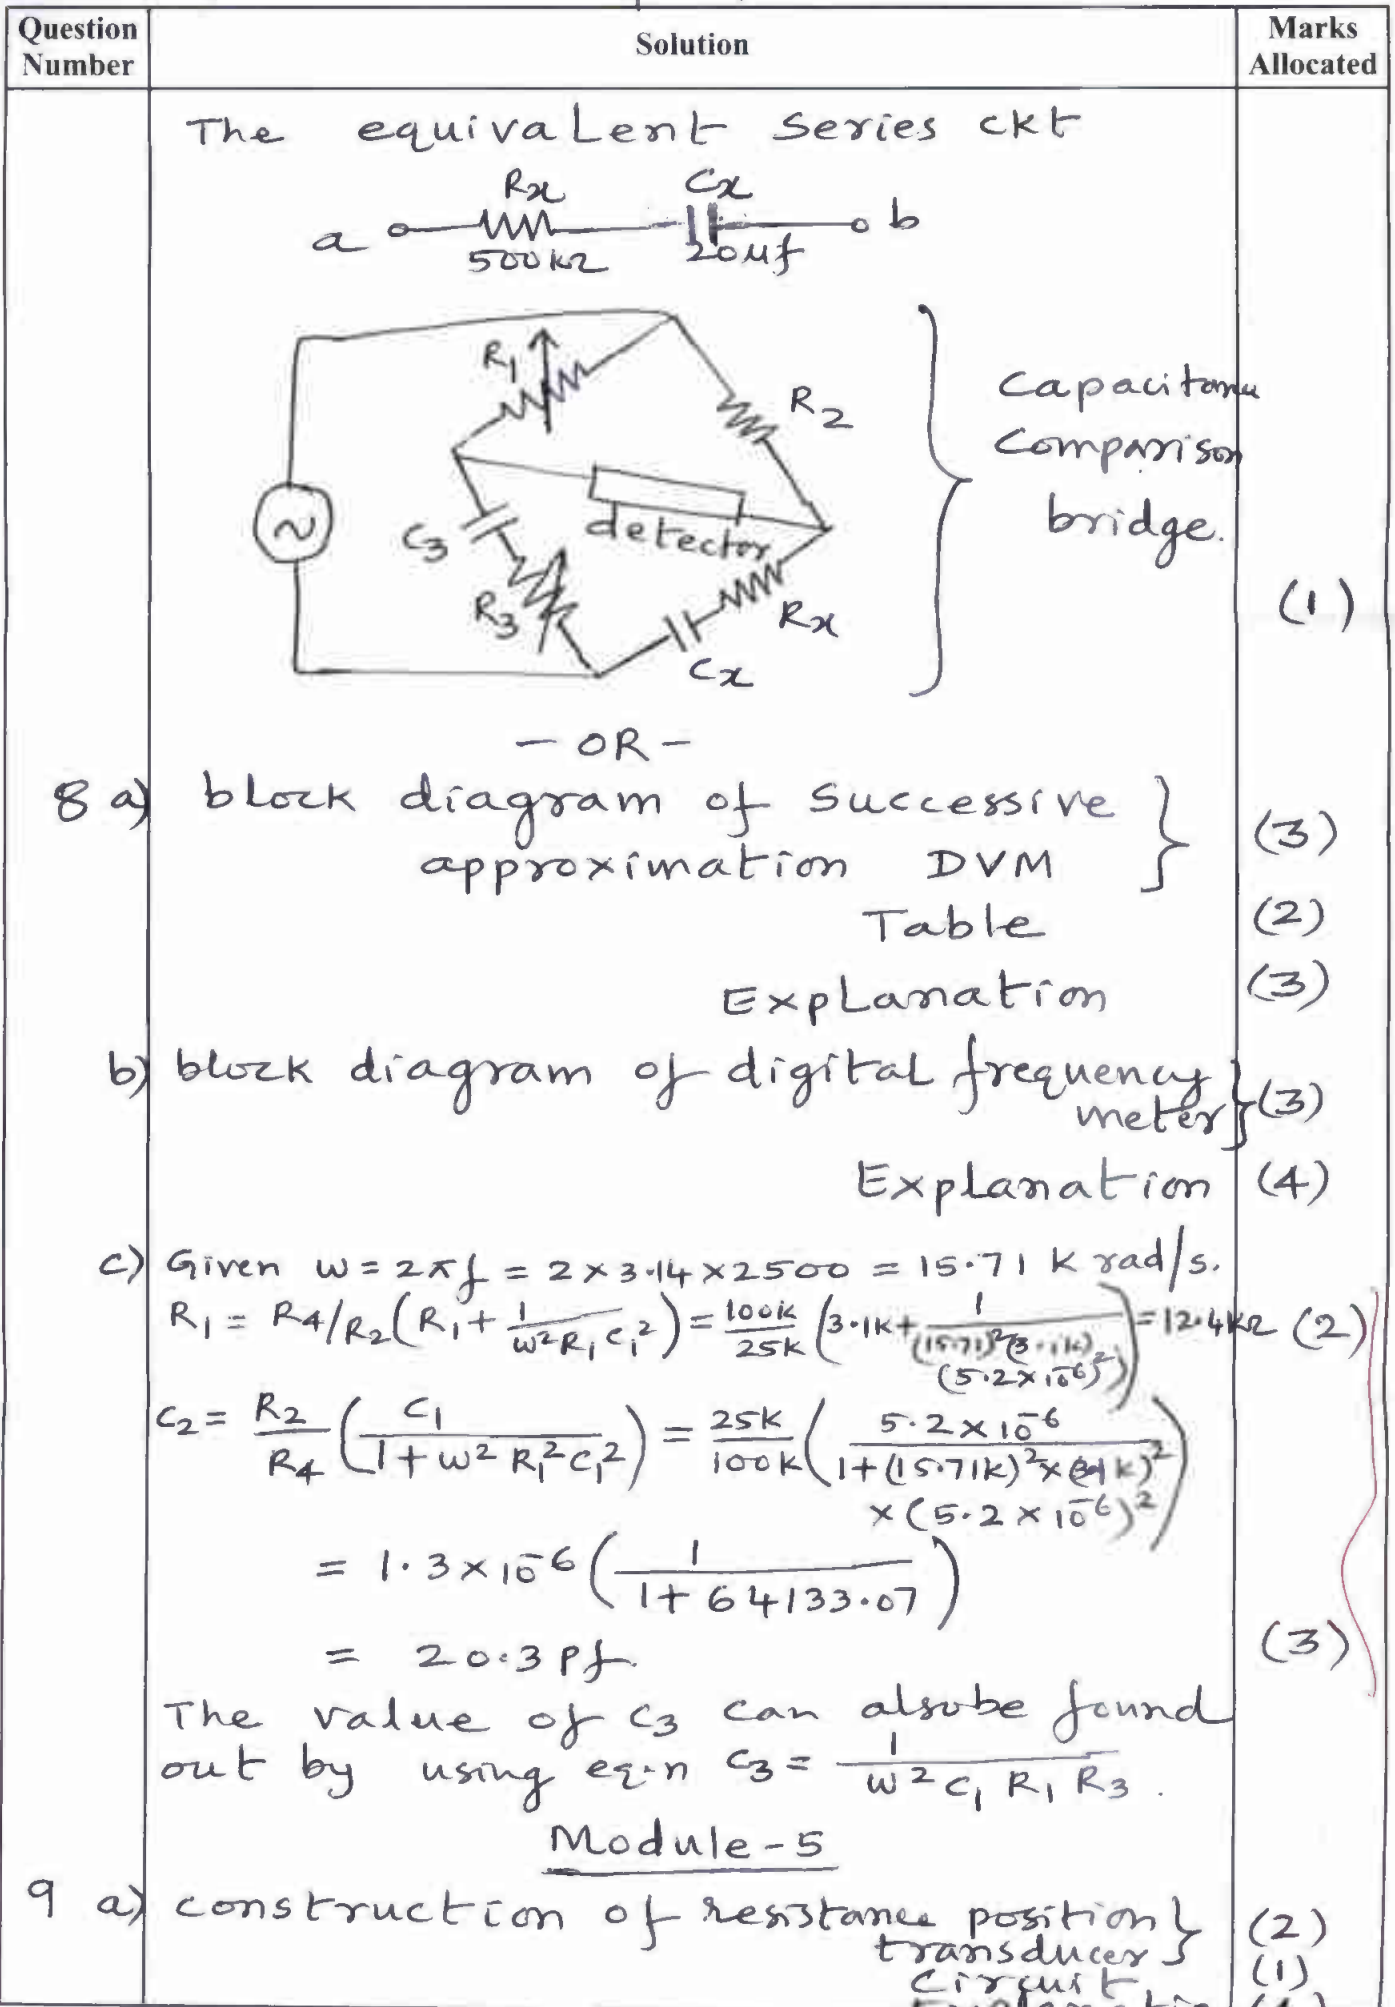 Question Number
Solution
Marks Allocated
The equivalent series ckt
Rx Cx
a b
500kΩ 20μf
R1
R2
C3
detector
R3
Rx
Cx
Capacitance
Comparison
bridge.
(1)
- OR -
8 a) block diagram of Successive
approximation DVM (3)
Table (2)
Explanation (3)
b) block diagram of digital frequency
meter (3)
Explanation (4)
c) Given w = 2πf = 2 × 3.14 × 2500 = 15.71 K rad/s.
R1 = R4/R2 (R1 + 1/(w²R1C1²)) = 100k/25k (3.1k + 1/((15.71)²(3.1k)(5.2×10⁻⁶)²)) = 12.4kΩ (2)
C2 = R2/R4 (C1/(1+w²R1²C1²)) = 25k/100k (5.2×10⁻⁶/(1+(15.71k)²×(3.1k)²×(5.2×10⁻⁶)²))
= 1.3×10⁻⁶ (1/(1+64133.07))
= 20.3 Pf (3)
The value of C3 can alsobe found
out by using eq.n C3 = 1/(w²C1R1R3).
Module-5
9 a) construction of resistance position
transducer (2)
Circuit (1)